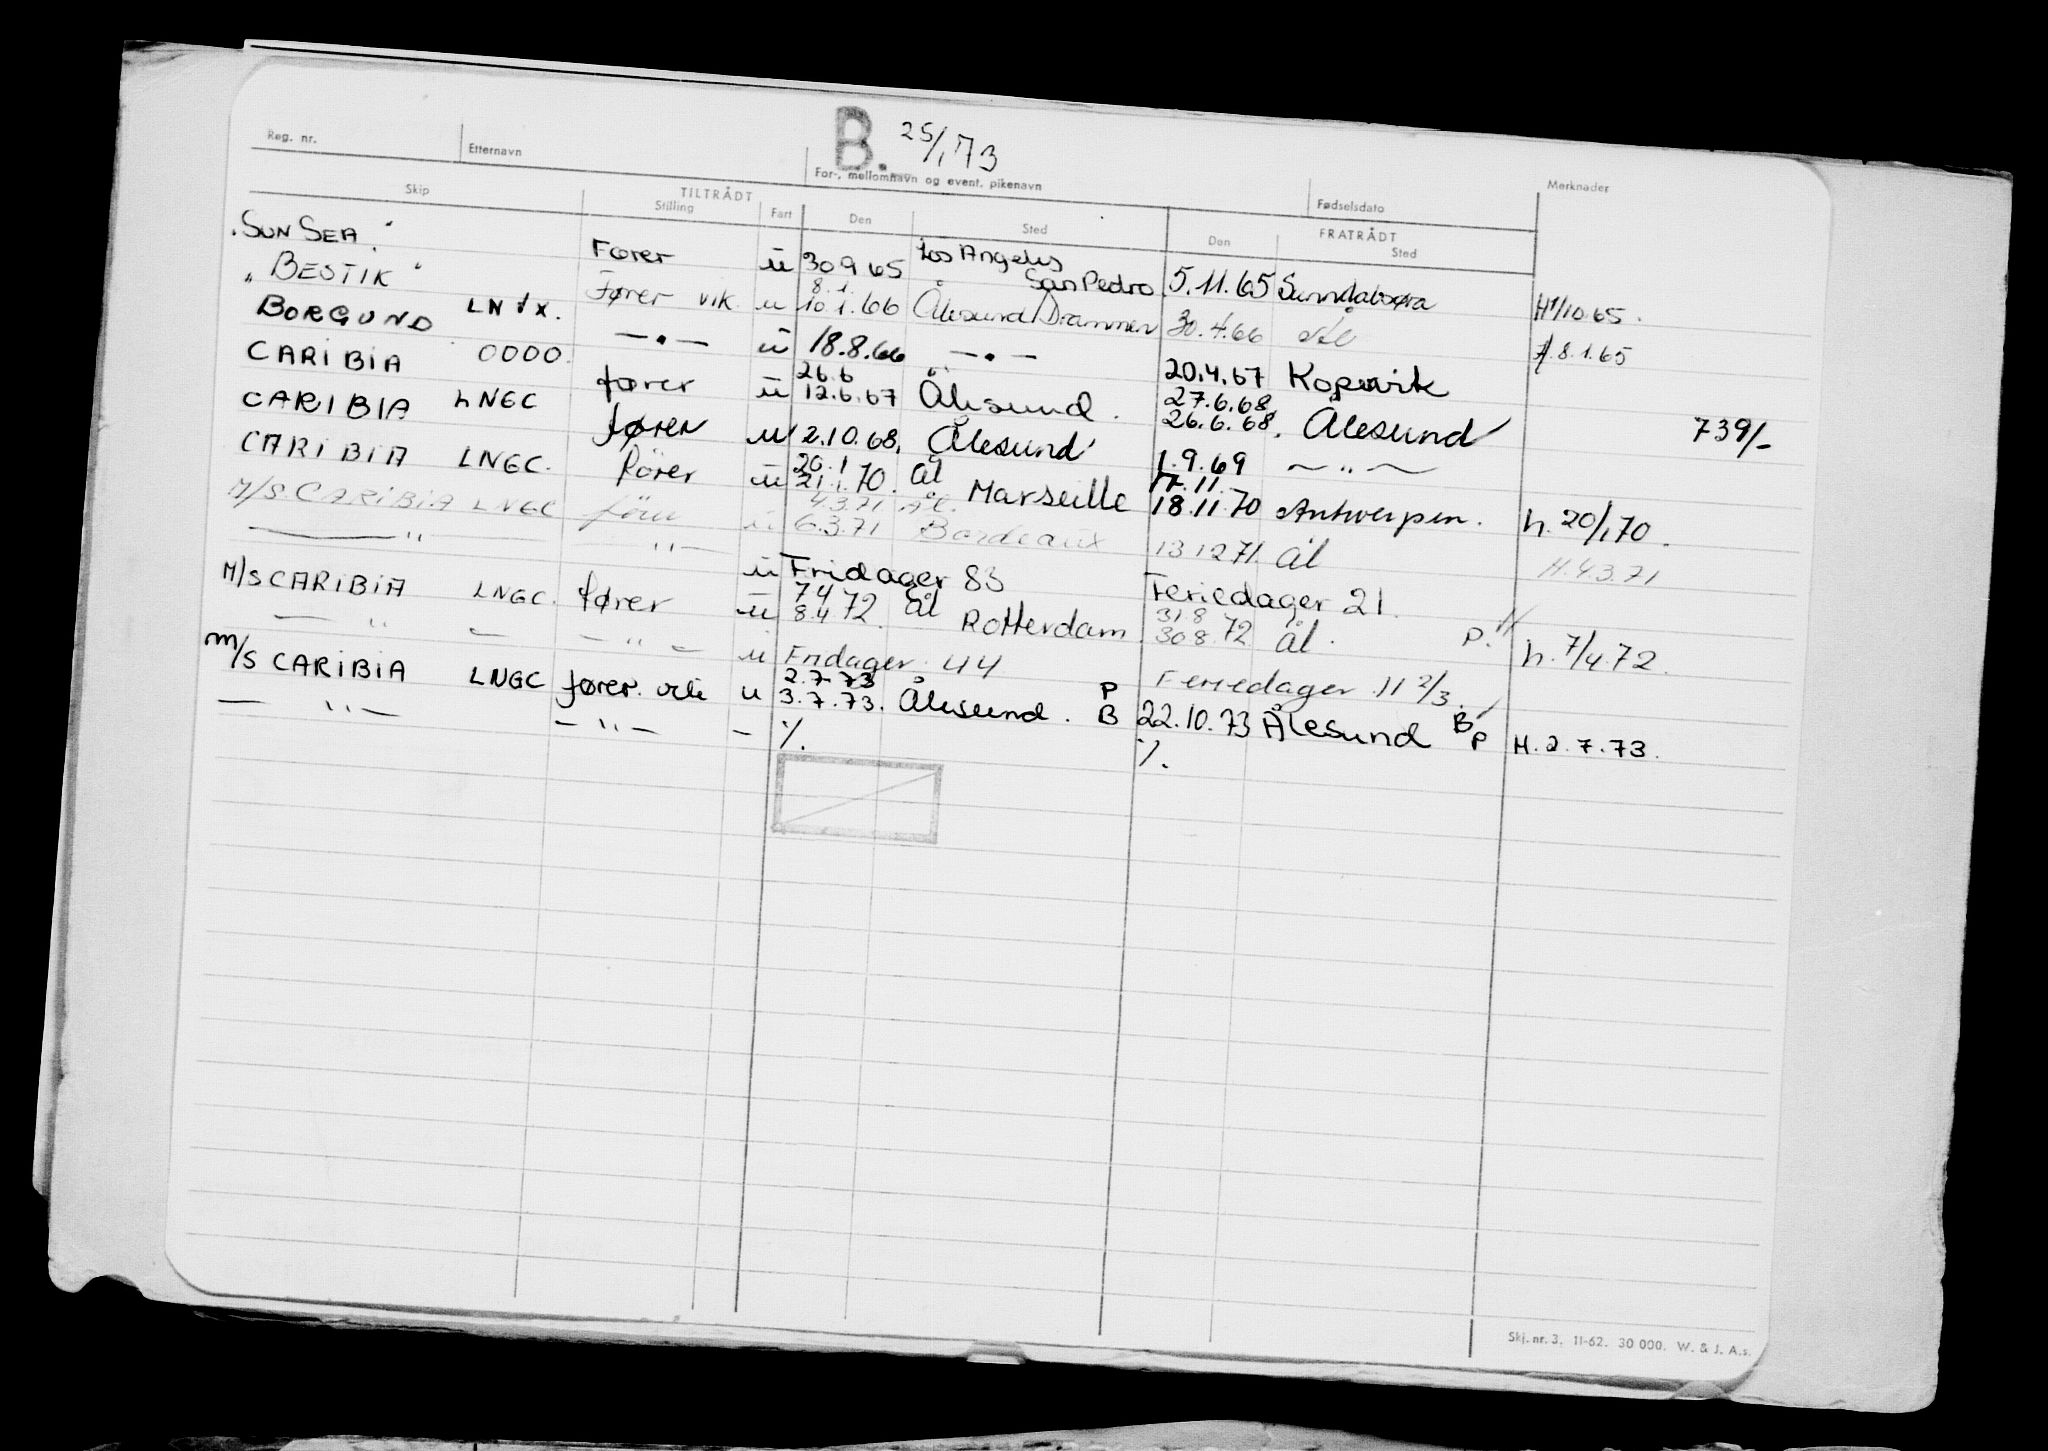 B. 25/1 73
Reg. nr. Etternavn For-, mellomnavn og event. pikenavn Fødselsdato Merknader
TILTRÅDT FRATRÅDT
Skip Stilling Fart Den Sted Den Sted
"SUN SEA" Fører u 30 9 65 Los Angeles San Pedro 5.11.65 Sunndalsøra H1/10.65.
"BESTIK" Fører vik. u 8.1. 10.1.66 Ålesund/Drammen 30.4.66 Ål 8.1.65
BORGUND LNVX. — " — u 18.8.66 — " — 20.4.67 Kopervik
CARIBIA OOOO. fører u 26.6 12.6.67 Ålesund. 27.6.68 26.6.68. Ålesund 739/-
CARIBIA LNGC fører u 2.10.68. Ålesund 1.9.69 — " —
CARIBIA LNGC. fører u 20.1 21.1.70. Ål Marseille 17.11. 18.11.70 Antwerpen. h. 20/1 70.
M/S CARIBIA LNGC fører u 4.3.71 6.3.71 Ål. Bordeaux 13 12 71. Ål H. 4.3.71
— " — " — u Fridager 83 Feriedager 21.
M/S CARIBIA LNGC. fører u 7 4 72 8.4 72. Ål Rotterdam. 31.8 30 8.72 Ål. P. h. 7/4.72.
— " — — " — u Fridager 44 Feriedager 11 2/3.
M/S CARIBIA LNGC fører u 2.7.73 3.7.73. Ålesund. P B 22.10.73 Ålesund B P H. 2.7.73.
— " — — " — - %. %.
Skj. nr. 3. 11-62. 30 000. W. & J. A.s.